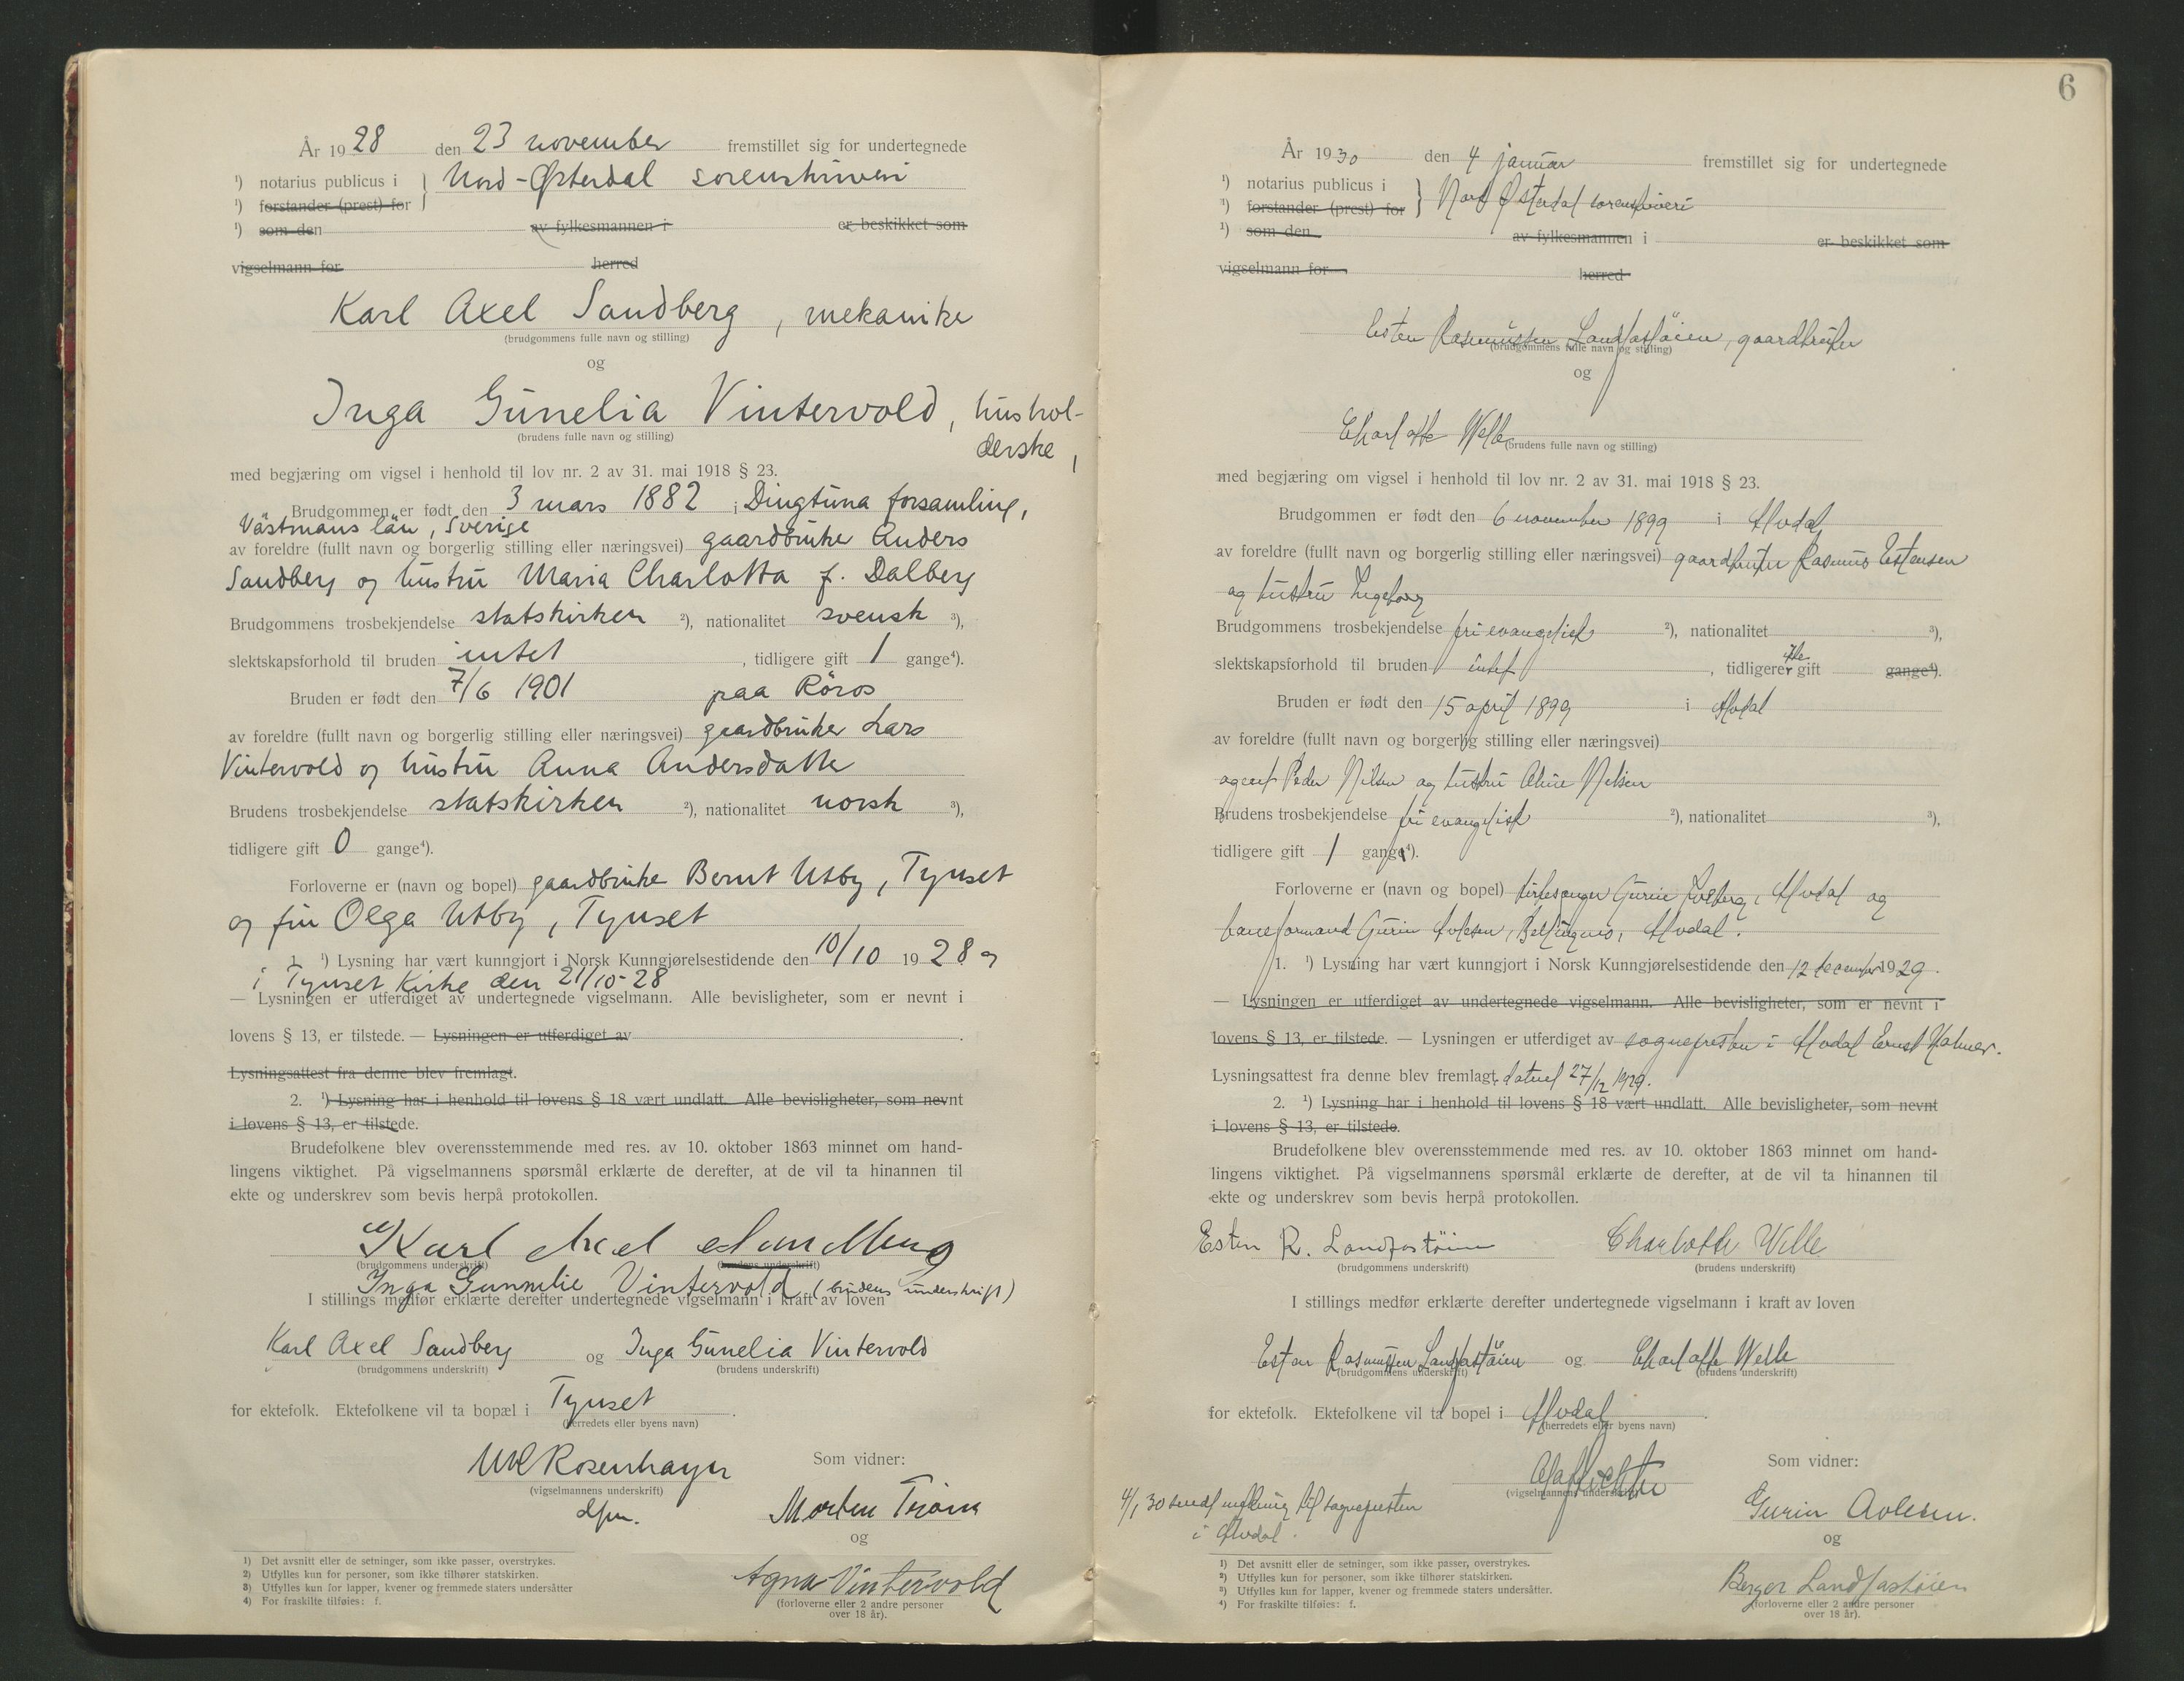 År 1928 den 23 november fremstillet sig for undertegnede
¹) notarius publicus i } Nord-Østerdal sorenskriveri
¹) forstander (prest) for
¹) som den av fylkesmannen i er beskikket som
vigselmann for herred
Karl Axel Sandberg, mekaniker
(brudgommens fulle navn og stilling)
og
Inga Gunelia Vintervold, hushol-
(brudens fulle navn og stilling)
derske,
med begjæring om vigsel i henhold til lov nr. 2 av 31. mai 1918 § 23.
Brudgommen er født den 3 mars 1882 i Dingtuna forsamling,
Västmans län, Sverige
av foreldre (fullt navn og borgerlig stilling eller næringsvei) gaardbruker Anders
Sandberg og hustru Maria Charlotta f. Dalberg
Brudgommens trosbekjendelse statskirken ²), nationalitet svensk ³),
slektskapsforhold til bruden intet, tidligere gift 1 gange⁴).
Bruden er født den 7/6 1901 paa Röros
av foreldre (fullt navn og borgerlig stilling eller næringsvei) gaardbruker Lars
Vintervold og hustru Anna Andersdatter
Brudens trosbekjendelse statskirken ²), nationalitet norsk ³),
tidligere gift 0 gange⁴).
Forloverne er (navn og bopel) gaardbruker Bernt Utby, Tynset
og fru Olga Utby, Tynset
1. ¹) Lysning har vært kunngjort i Norsk Kunngjørelsestidende den 10/10 1928 og
i Tynset Kirke den 21/10-28
— Lysningen er utferdiget av undertegnede vigselmann. Alle bevisligheter, som er nevnt i
lovens § 13, er tilstede. — Lysningen er utferdiget av .
Lysningsattest fra denne blev fremlagt.
2. ¹) Lysning har i henhold til lovens § 18 vært undlatt. Alle bevisligheter, som nevnt
i lovens § 13, er tilstede.
Brudefolkene blev overensstemmende med res. av 10. oktober 1863 minnet om hand-
lingens viktighet. På vigselmannens spørsmål erklærte de derefter, at de vil ta hinannen til
ekte og underskrev som bevis herpå protokollen.
Karl Axel Sandberg
(brudgommens underskrift) (brudens underskrift)
Inga Gunnelie Vintervold (brudens underskrift)
I stillings medfør erklærte derefter undertegnede vigselmann i kraft av loven
Karl Axel Sandberg og Inga Gunelia Vintervold
(brudgommens underskrift) (brudens underskrift)
for ektefolk. Ektefolkene vil ta bopæl i Tynset.
(herredets eller byens navn)
Rosenhayn Som vidner:
(vigselmannens underskrift)
dfm. Morten Trøan
og
Agna Vintervold
(forloverne eller 2 andre personer
over 18 år).
1) Det avsnitt eller de setninger, som ikke passer, overstrykes.
2) Utfylles kun for personer, som ikke tilhører statskirken.
3) Utfylles kun for lapper, kvener og fremmede staters undersåtter
4) For fraskilte tilføies: f.
6
År 1930 den 4 januar fremstillet sig for undertegnede
¹) notarius publicus i } Nord Østerdal sorenskriveri
¹) forstander (prest) for
¹) som den av fylkesmannen i er beskikket som
vigselmann for herred
Esten Rasmussen Landfastøien, gaardbruker
(brudgommens fulle navn og stilling)
og
Charlotte Welle
(brudens fulle navn og stilling)
med begjæring om vigsel i henhold til lov nr. 2 av 31. mai 1918 § 23.
Brudgommen er født den 6 november 1899 i Alvdal
av foreldre (fullt navn og borgerlig stilling eller næringsvei) gaardbruker Rasmus Estensen
og hustru Ingeborg
Brudgommens trosbekjendelse fri evangelisk ²), nationalitet ³),
slektskapsforhold til bruden intet, tidligere ikke gift gange⁴).
Bruden er født den 15 april 1899 i Alvdal
av foreldre (fullt navn og borgerlig stilling eller næringsvei)
agent Peder Nilsen og hustru Oline Nilsen
Brudens trosbekjendelse fri evangelisk ²), nationalitet ³),
tidligere gift 1 gang⁴).
Forloverne er (navn og bopel) kirkesanger Gurin, Alvdal og
baneformand Gurin Avlesen, Bellingmo, Alvdal.
1. ¹) Lysning har vært kunngjort i Norsk Kunngjørelsestidende den 12 december 1929.
— Lysningen er utferdiget av undertegnede vigselmann. Alle bevisligheter, som er nevnt i
lovens § 13, er tilstede. — Lysningen er utferdiget av sognepresten i Alvdal Ernst Halmer.
Lysningsattest fra denne blev fremlagt, datert 27/12 1929.
2. ¹) Lysning har i henhold til lovens § 18 vært undlatt. Alle bevisligheter, som nevnt
i lovens § 13, er tilstede.
Brudefolkene blev overensstemmende med res. av 10. oktober 1863 minnet om hand-
lingens viktighet. På vigselmannens spørsmål erklærte de derefter, at de vil ta hinannen til
ekte og underskrev som bevis herpå protokollen.
Esten R. Landfastöien Charlotte Welle
(brudgommens underskrift) (brudens underskrift)
I stillings medfør erklærte derefter undertegnede vigselmann i kraft av loven
Esten Rasmussen Landfastöien og Charlotte Welle
(brudgommens underskrift) (brudens underskrift)
for ektefolk. Ektefolkene vil ta bopel i Alvdal.
(herredets eller byens navn)
Som vidner:
(vigselmannens underskrift)
4/1 30 sendt melding til sognepresten
i Alvdal.
Gurin Avlesen.
og
Berger Landfastøien
(forloverne eller 2 andre personer
over 18 år).
1) Det avsnitt eller de setninger, som ikke passer, overstrykes.
2) Utfylles kun for personer, som ikke tilhører statskirken.
3) Utfylles kun for lapper, kvener og fremmede staters undersåtter.
4) For fraskilte tilføies: f.